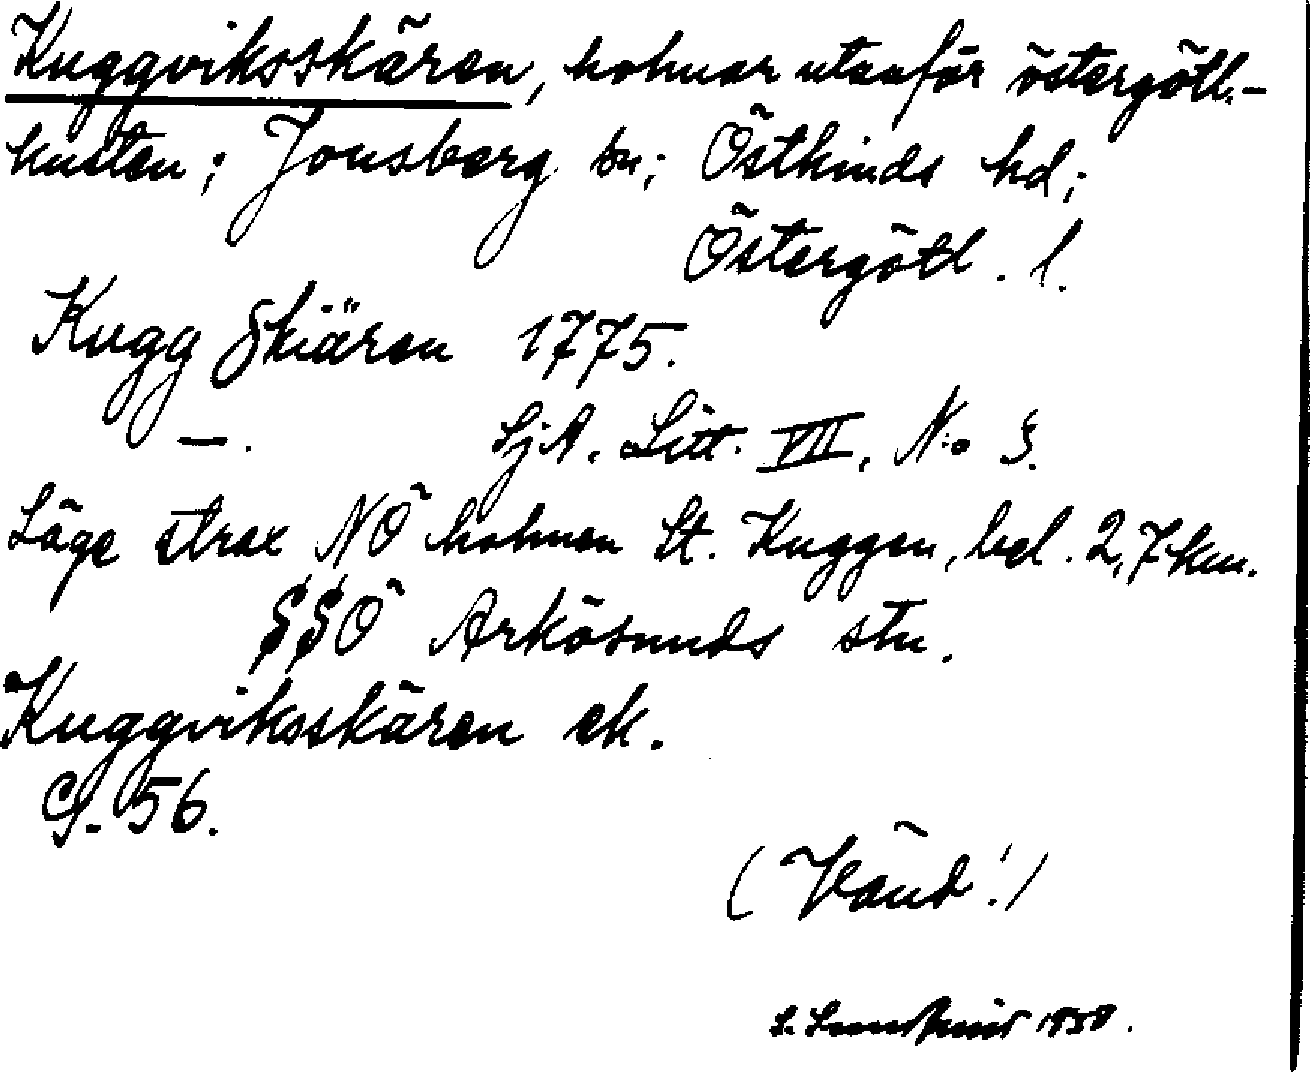 Kuggviksskären, holmar utanför östergötl.-
kusten; Jonsberg sn; Östkinds hd;
Östergötl. l.
Kugg Skiären 1775.
—. SjA. Litt. VII, No 3.
Läge strax NÖ holmen St. Kuggen, bel. 2,7 km.
SSÖ Arkösunds stn.
Kuggviksskären ek.
G. 56.
(Vänd!)
S. 1950.